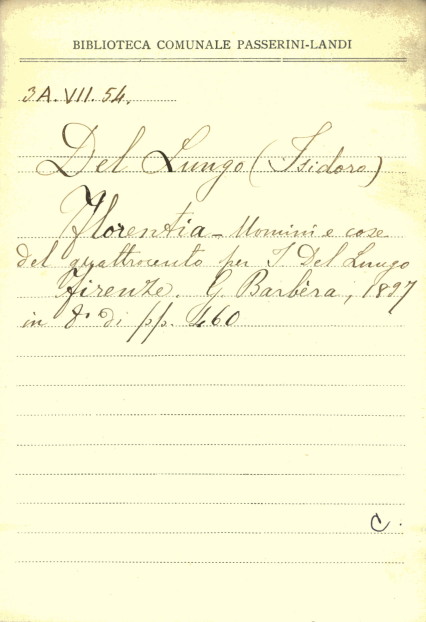 BIBLIOTECA COMUNALE PASSERINI-LANDI
3A.VII.54.
Del Lungo (Isidoro)
Florentia - Uomini e cose
del quattrocento per I Del Lungo
Firenze. G Barbèra, 1897
in 8° di pp. 460
C.